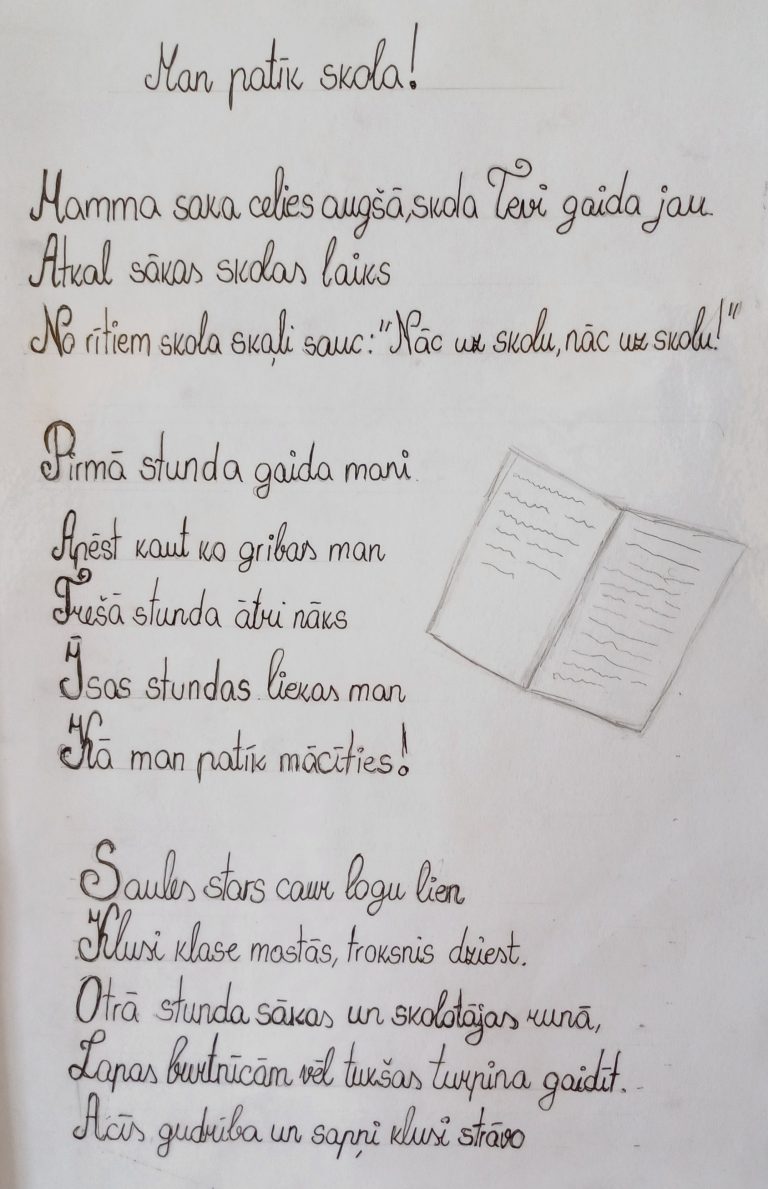 Man patīk skola!
Mamma saka celies augšā, skola Tevi gaida jau.
Atkal sākas skolas laiks
No rītiem skola skaļi sauc: "Nāc uz skolu, nāc uz skolu!"
Pirmā stunda gaida mani.
Apēst kaut ko gribas man
Trešā stunda ātri nāks
Īsas stundas liekas man
Kā man patīk mācīties!
Saules stars caur logu lien
Klusi klase mostās, troksnis dziest.
Otrā stunda sākas un skolotājas runā,
Lapas burtnīcām vēl tukšas turpina gaidīt.
Acīs gudrība un sapņi klusi strāvo